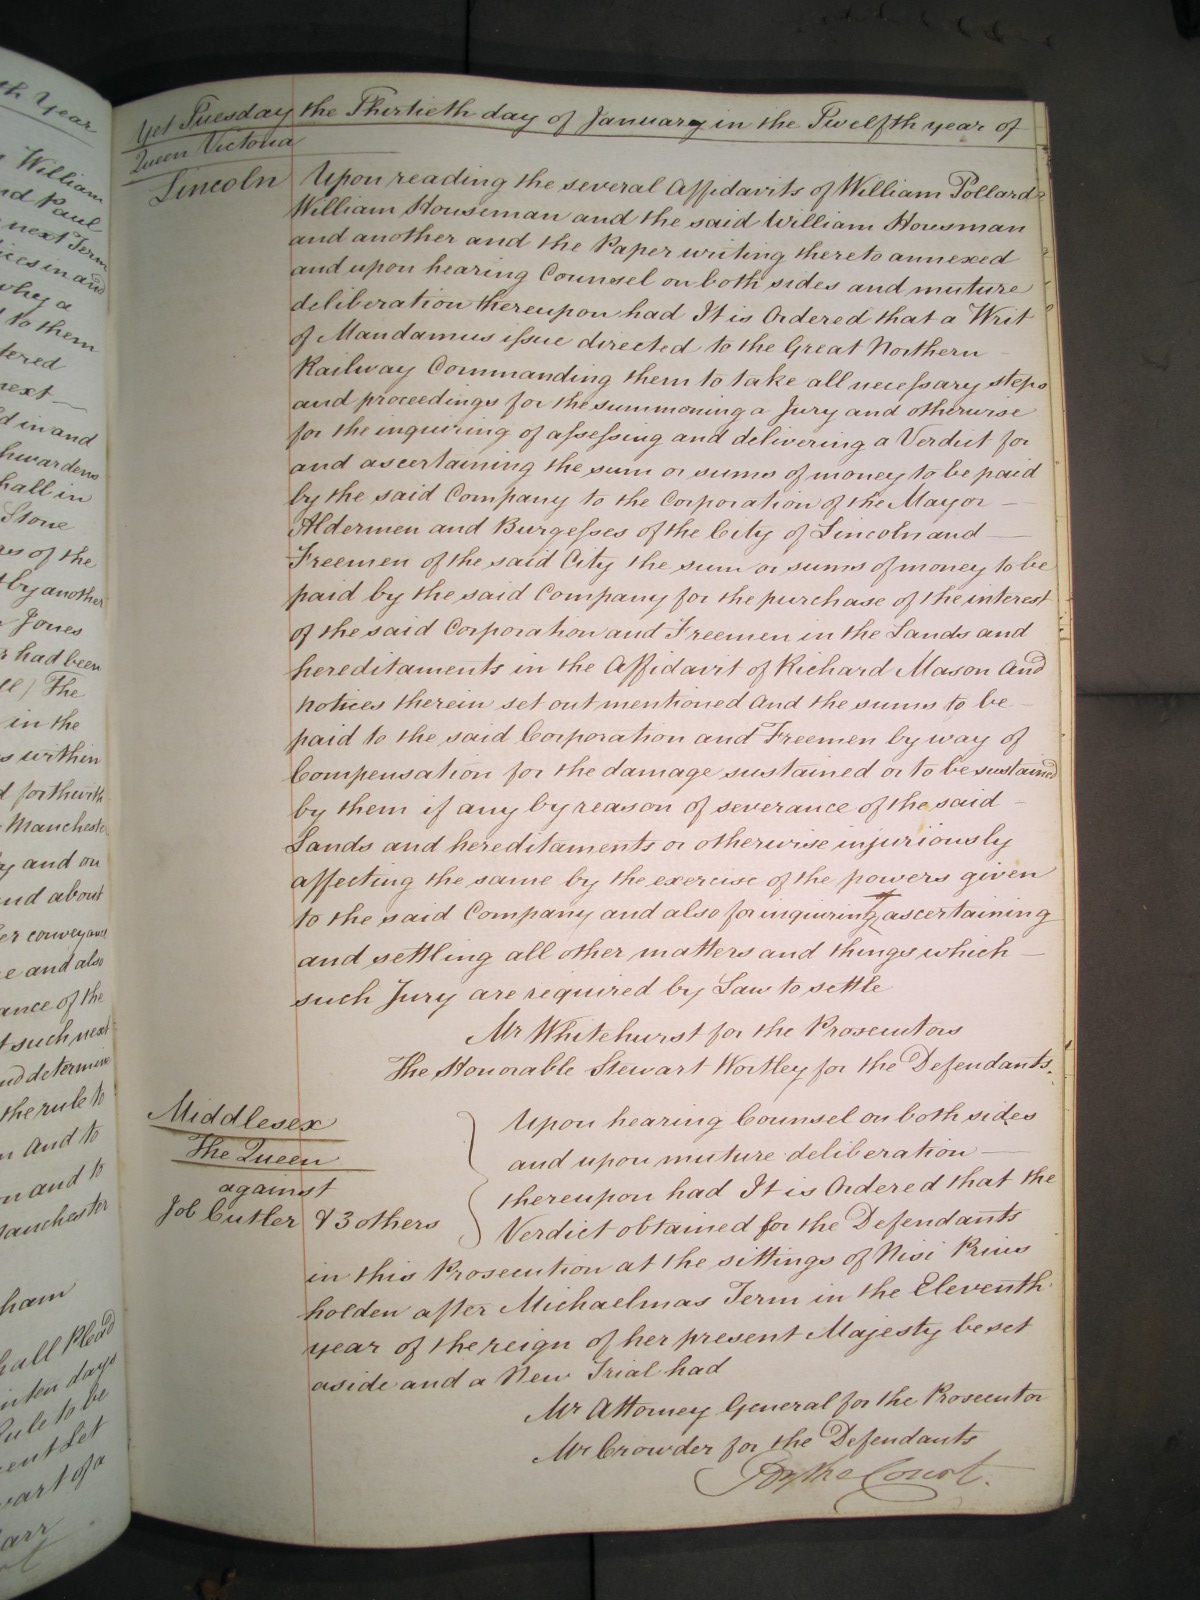 th Year
William
nd Paul
next Term
why a
to them
tered
next
d in and
hwardens
hall in
Stone
of the
by another
Jones
had been
The
in the
s within
d forthwith
Manchester
y and on
and about
er conveyance
e and also
ance of the
t such next
and determine
the rule to
n and to
on and to
Manchester
ham
hall Plead
in ten days
Rule to be
ent Let
art of a
arr
Yet Tuesday the Thirtieth day of January in the Twelfth year of
Queen Victoria
Lincoln Upon reading the several Affidavits of William Pollard
William Houseman and the said William Housman
and another and the Paper writing thereto annexed
and upon hearing Counsel on both sides and muture
deliberation thereupon had It is Ordered that a Writ
of Mandamus issue directed to the Great Northern
Railway Commanding them to take all necessary steps
and proceedings for the summoning a Jury and otherwise
for the inquiring of assessing and delivering a Verdict for
and ascertaining the sum or sums of money to be paid
by the said Company to the Corporation of the Mayor —
Aldermen and Burgesses of the City of Lincoln and —
Freemen of the said City the sum or sums of money to be
paid by the said Company for the purchase of the interest
of the said Corporation and Freemen in the Lands and
hereditaments in the Affidavit of Richard Mason and
notices therein set out mentioned and the sums to be
paid to the said Corporation and Freemen by way of
Compensation for the damage sustained or to be sustained
by them if any by reason of severance of the said —
Lands and hereditaments or otherwise injuriously
affecting the same by the exercise of the powers given
to the said Company and also for inquiring ascertaining
and settling all other matters and things which —
such Jury are required by Law to settle
Mr Whitehurst for the Prosecutors
The Honorable Stewart Wortley for the Defendants.
Middlesex
The Queen
against
Job Cutler & 3 others
Upon hearing Counsel on both sides
and upon muture deliberation —
thereupon had It is Ordered that the
Verdict obtained for the Defendants
in this Prosecution at the sittings of Nisi Prius
holden after Michaelmas Term in the Eleventh
year of the reign of her present Majesty be set
aside and a New Trial had
Mr Attorney General for the Prosecutor
Mr Crowder for the Defendants
By the Court.